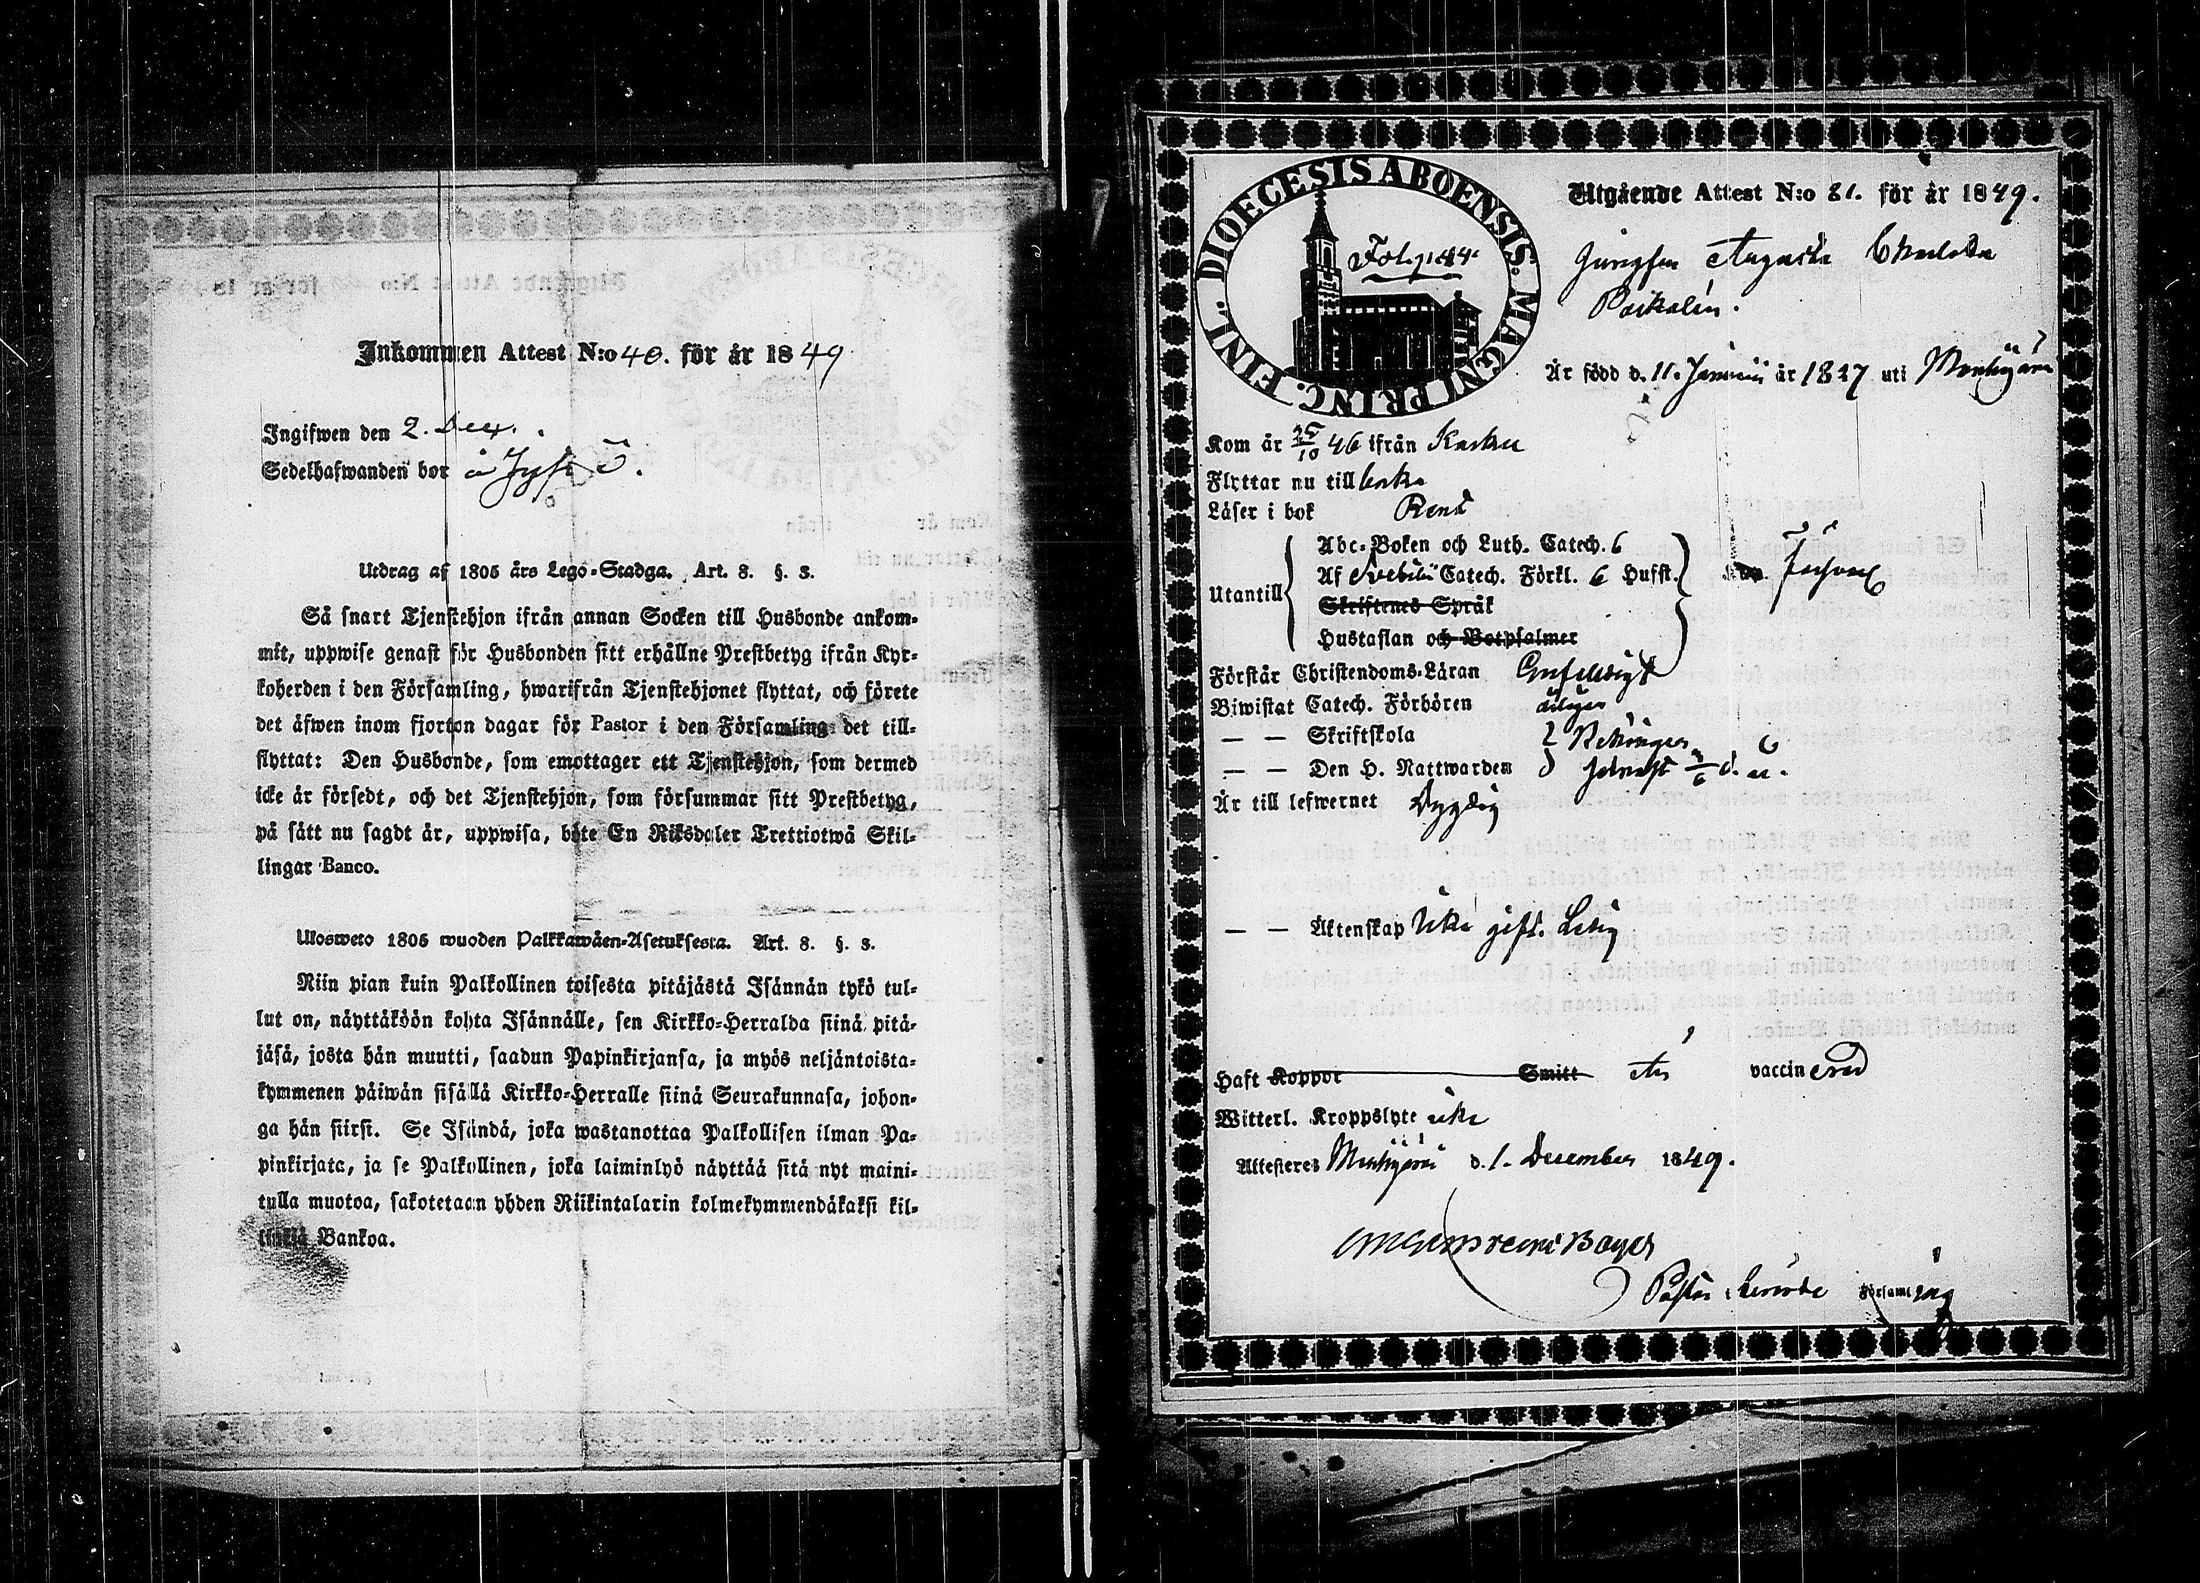 Inkommen Attest N:o 40. för år 1849
Ingifwen den 2. Dec.
Sedelhafwanden bor å
Utdrag af 1805 års Lego-Stadga. Art. 8. §. 3.
Så snart Tjenstehjon ifrån annan Socken till Husbonde ankom-
mit, uppwise genast för Husbonden sitt erhållne Prestbetyg ifrån Kyr-
koherden i den Församling, hwarifrån Tjenstehjonet flyttat, och förete
det äfwen inom fjorton dagar för Pastor i den Församling det till-
flyttat: Den Husbonde, som emottager ett Tjenstehjon, som dermed
icke är försedt, och det Tjenstehjon, som försummar sitt Prestbetyg,
på sätt nu sagdt är, uppwisa, böte En Riksdaler Trettiotwå Skil-
lingar Banco.
Ulosweto 1805 wuoden Palkkawäen-Asetuksesta. Art. 8. §. 3.
Niin pian kuin Palkollinen toisesta pitäjästä Isännän tykö tul-
lut on, näyttäköön kohta Isännälle, sen Kirkko-Herralda siinä pitä-
jäsä, josta hän muutti, saadun Papinkirjansa, ja myös neljäntoista-
kymmenen päiwän sisällä Kirkko-Herralle siinä Seurakunnasa, johon-
ga hän siirsi. Se Isändä, joka wastanottaa Palkollisen ilman Pa-
pinkirjata, ja se Palkollinen, joka laiminlyö näyttää sitä nyt maini-
tulla muotoa, sakotetaan yhden Riikintalarin kolmekymmendäkaksi kil-
linkiä Bankoa.
DIOECESIS ABOENSIS. MAGNI PRINC. FINL.
Fol. 144
Utgående Attest N:o 81. för år 1849.
Jungfru Augusta Charlotta
Är född d. 11. Januarii år 1827 uti
Kom år 25/10 46 ifrån Karku
Flyttar nu till
Läser i bok Rent
Utantill
Abc-Boken och Luth. Catech. 6
Af Svebilii Catech. Förkl. 6 Hufst.
Skriftenes Språk
Hustaflan och Botpsalmer
Förstår Christendoms-Läran
Biwistat Catech. Förhören årligen
— — Skriftskola
— — Den H. Nattwarden
Är till lefwernet Dygdig
— — Äktenskap Icke gift. Ledig
Haft Koppor Smitt Är vaccinerad
Witterl. Kroppslyte icke
Attesteras d. 1. December 1849.
Pastor i församling